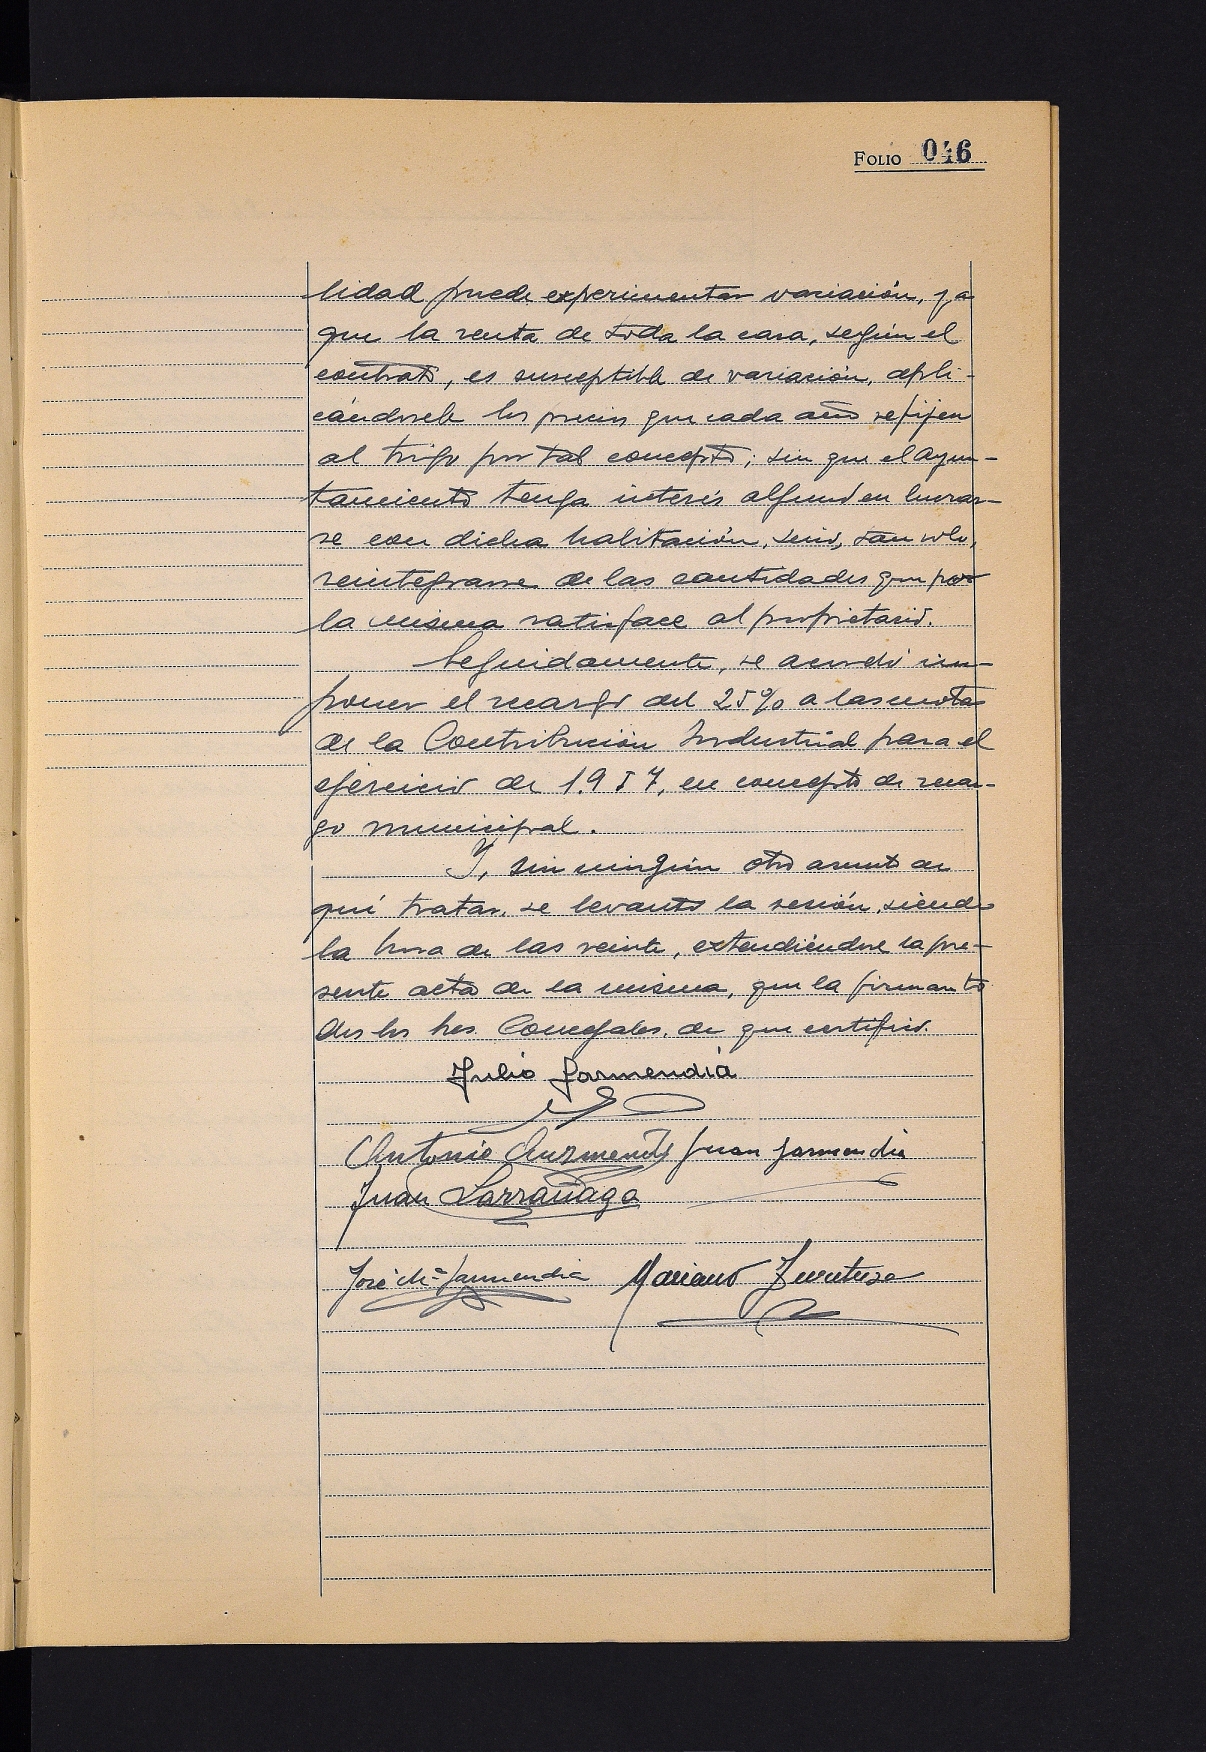 FOLIO 046
lidad puede experimentar variación, ya
que la renta de toda la casa, según el
contrato, es susceptible de variación, apli-
cándosele los precios que cada año se fijen
al trigo por tal concepto; sin que el ayun-
tamiento tenga interés alguno en lucrar-
se con dicha habitación, sino, tan solo,
reintegrarse de las cantidades que por
la misma satisface al propietario.
Seguidamente, se acordó im-
poner el recargo del 25% a las cuotas
de la Contribución Industrial para el
ejercicio de 1.957, en concepto de recar-
go municipal.
Y, sin ningún otro asunto de
qué tratar, se levantó la sesión, siendo
la hora de las veinte, extendiéndose la pre-
sente acta de la misma, que la firman to
dos los Sres. Concejales, de que certifico.
Julio Garmendia
Antonio Juan Garmendia
Juan Larrañaga
José Mª Garmendia Mariano